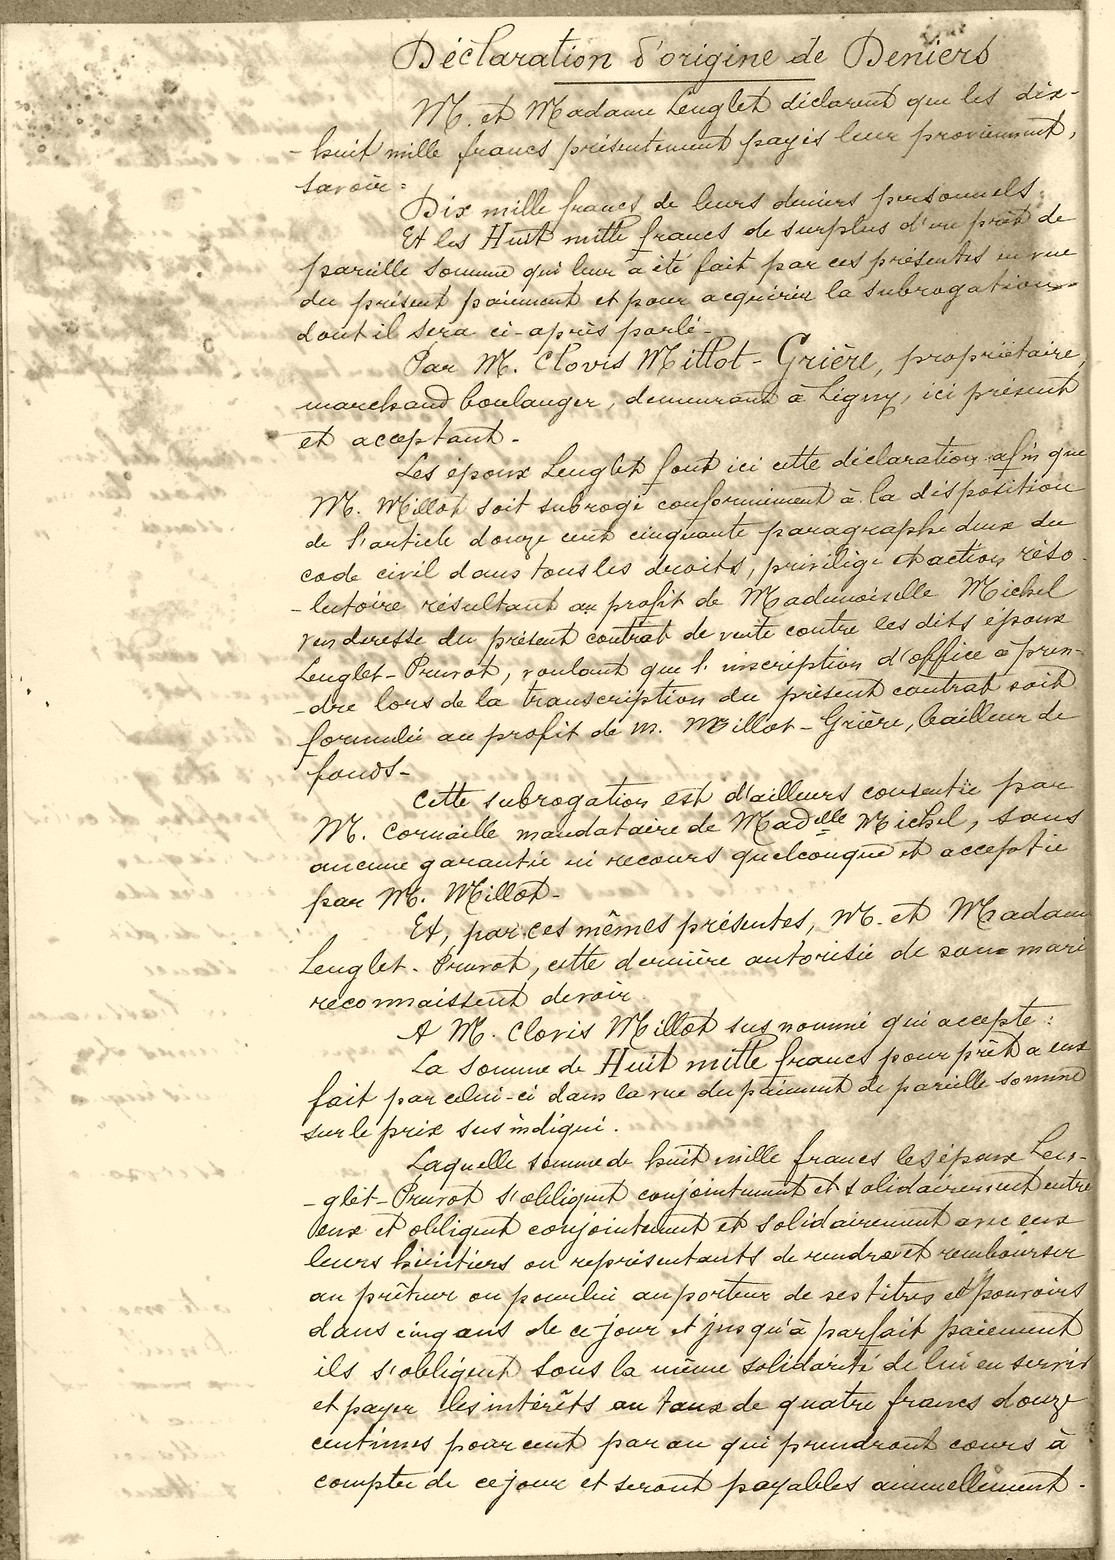 Déclaration d'origine de Deniers
M. et Madame Lenglet déclarent que les dix-
-huit mille francs présentement payés leur proviennent,
savoir:
Dix mille francs de leurs deniers personnels
Et les Huit mille francs de surplus d'un prêt de
pareille somme qui leur a été fait par ces présentes en vue
du présent paiement et pour acquérir la subrogation
dont il sera ci-après parlé-
Par M. Clovis Millot-Grière, propriétaire,
marchand boulanger, demeurant à Ligny, ici présent
et acceptant-
Les époux Lenglet font ici cette déclaration afin que
M. Millot soit subrogé conformément à la disposition
de l'article douze cent cinquante paragraphe deux du
code civil dans tous les droits, privilège et action réso-
-lutoire résultant au profit de Mademoiselle Michel
venderesse du présent contrat de vente contre les dits époux
Lenglet-Pruvot, voulant que l'inscription d'office à pren-
-dre lors de la transcription du présent contrat soit
formulée au profit de m. Millot-Grière, bailleur de
fonds-
Cette subrogation est d'ailleurs consentie par
M. Cornaille mandataire de Madelle Michel, sans
aucune garantie ni recours quelconque et acceptée
par M. Millot-
Et, par ces mêmes présentes, M. et Madame
Lenglet-Pruvot, cette dernière autorisée de son mari
reconnaissent devoir.
A M. Clovis Millot sus nommé qui accepte:
La somme de Huit mille francs pour prêt à eux
fait par celui-ci dans la vue du paiement de pareille somme
sur le prix sus indiqué.
Laquelle somme de huit mille francs les époux Len-
-glet-Pruvot s'obligent conjointement et solidairement entre
eux et obligent conjointement et solidairement avec eux
leurs héritiers ou représentants de rendre et rembourser
au prêteur ou pour lui au porteur de ses titres et pouvoirs
dans cinq ans de ce jour et jusqu'à parfait paiement
ils s'obligent sous la même solidarité de lui en servir
et payer les intérêts au taux de quatre francs douze
centimes pour cent par an qui prendront cours à
compter de ce jour et seront payables annuellement-